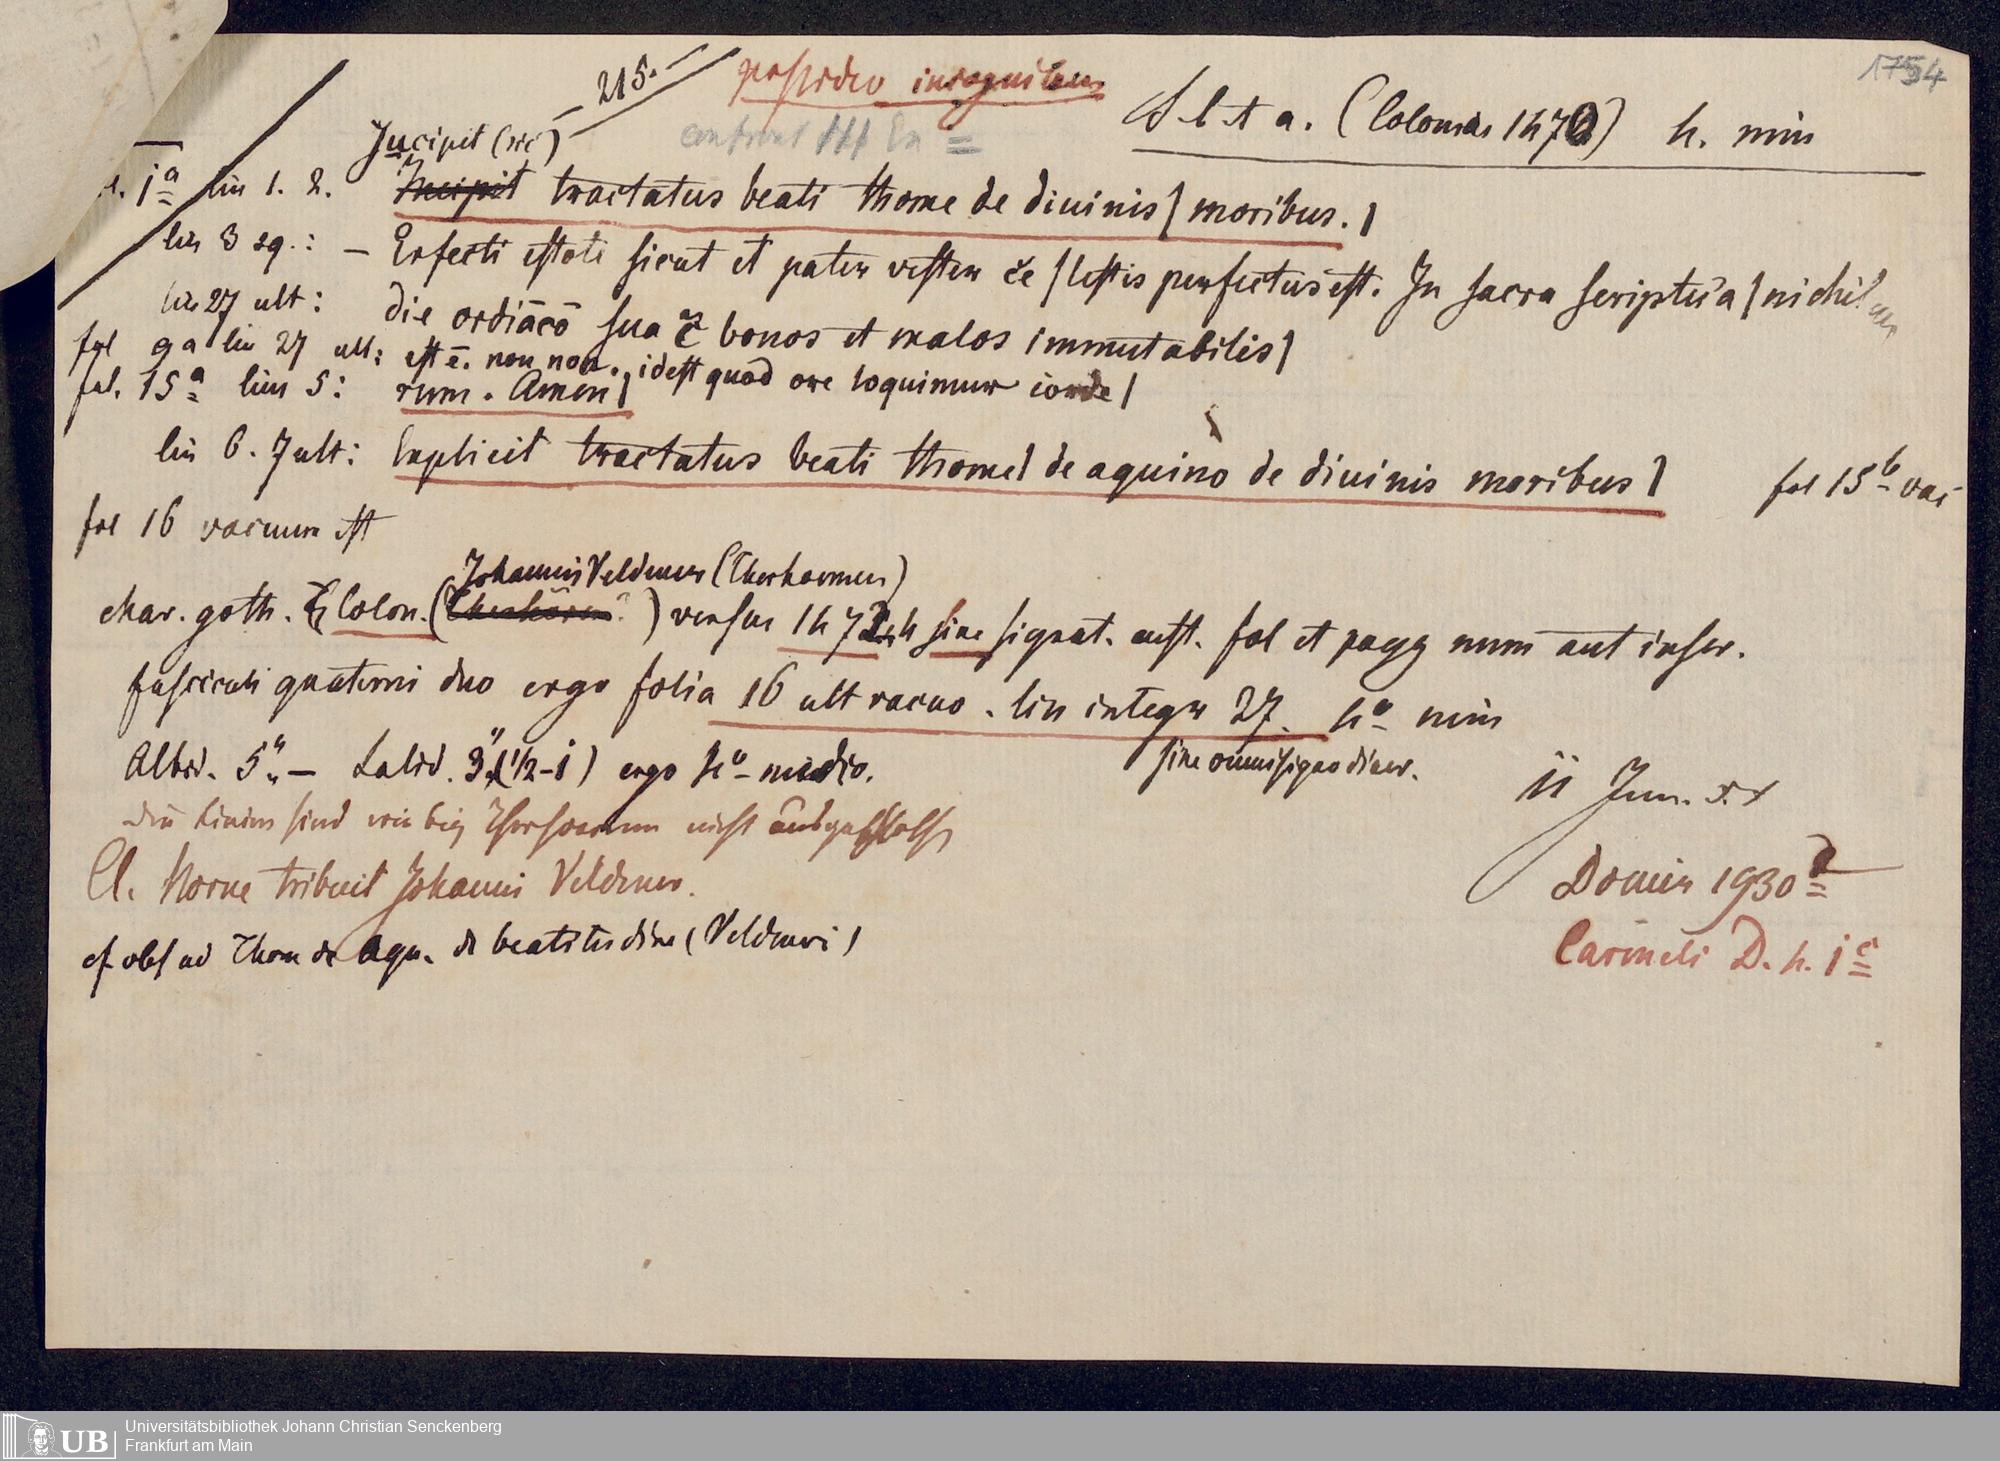 1754
215.
S l t a. (Coloniae 147) 4. min
Jucipit (sic)
1a lin 1. 2. Incipit tractatus beati thome de diuinis | moribus. |
lin 3 sq.: — Erfecti estote sicut et pater vester ce | lestis perfectus est. In sacra scriptura | nichil
lin 27 ult: die ordiāco sua bonos et malos immutabilis |
fol 9a lin 27 ult: est ē. non non. idest quod ore loquimur corde |
fol. 15a lin 5: rum. Amen |
lin 6. 7 ult: Explicit tractatus beati thome | de aquino de diuinis moribus | fol 15b vac
fol 16 vacuum est
Johannis Veldener (Therhoernen)
char. goth. Colon. ( ) versus 147 sine signat. cust. fol et pagg num aut inscr.
fasciculi quaterni duo ergo folia 16 ult vacuo. lin integr 27. 4o min
sine omni signo diacr.
Altid. 5" — Latid. 3" (1/2-1) ergo 4o medio.
die Linien sind wie bei nicht
Cl. Norne tribuit Johanni Veldener.
cf obs ad Thom de Aqu. de beatitudine (Veldeneri)
ii Jun.
Domin 1930
Carmeli D. 4. i
Universitätsbibliothek Johann Christian Senckenberg
UB Frankfurt am Main